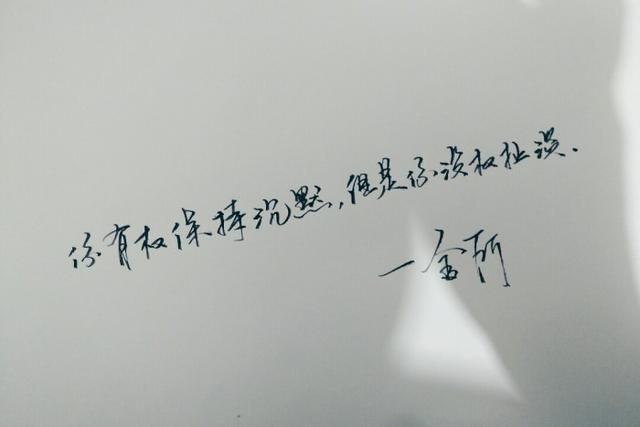 你有权保持沉默,但是你没权扯淡.
—金所